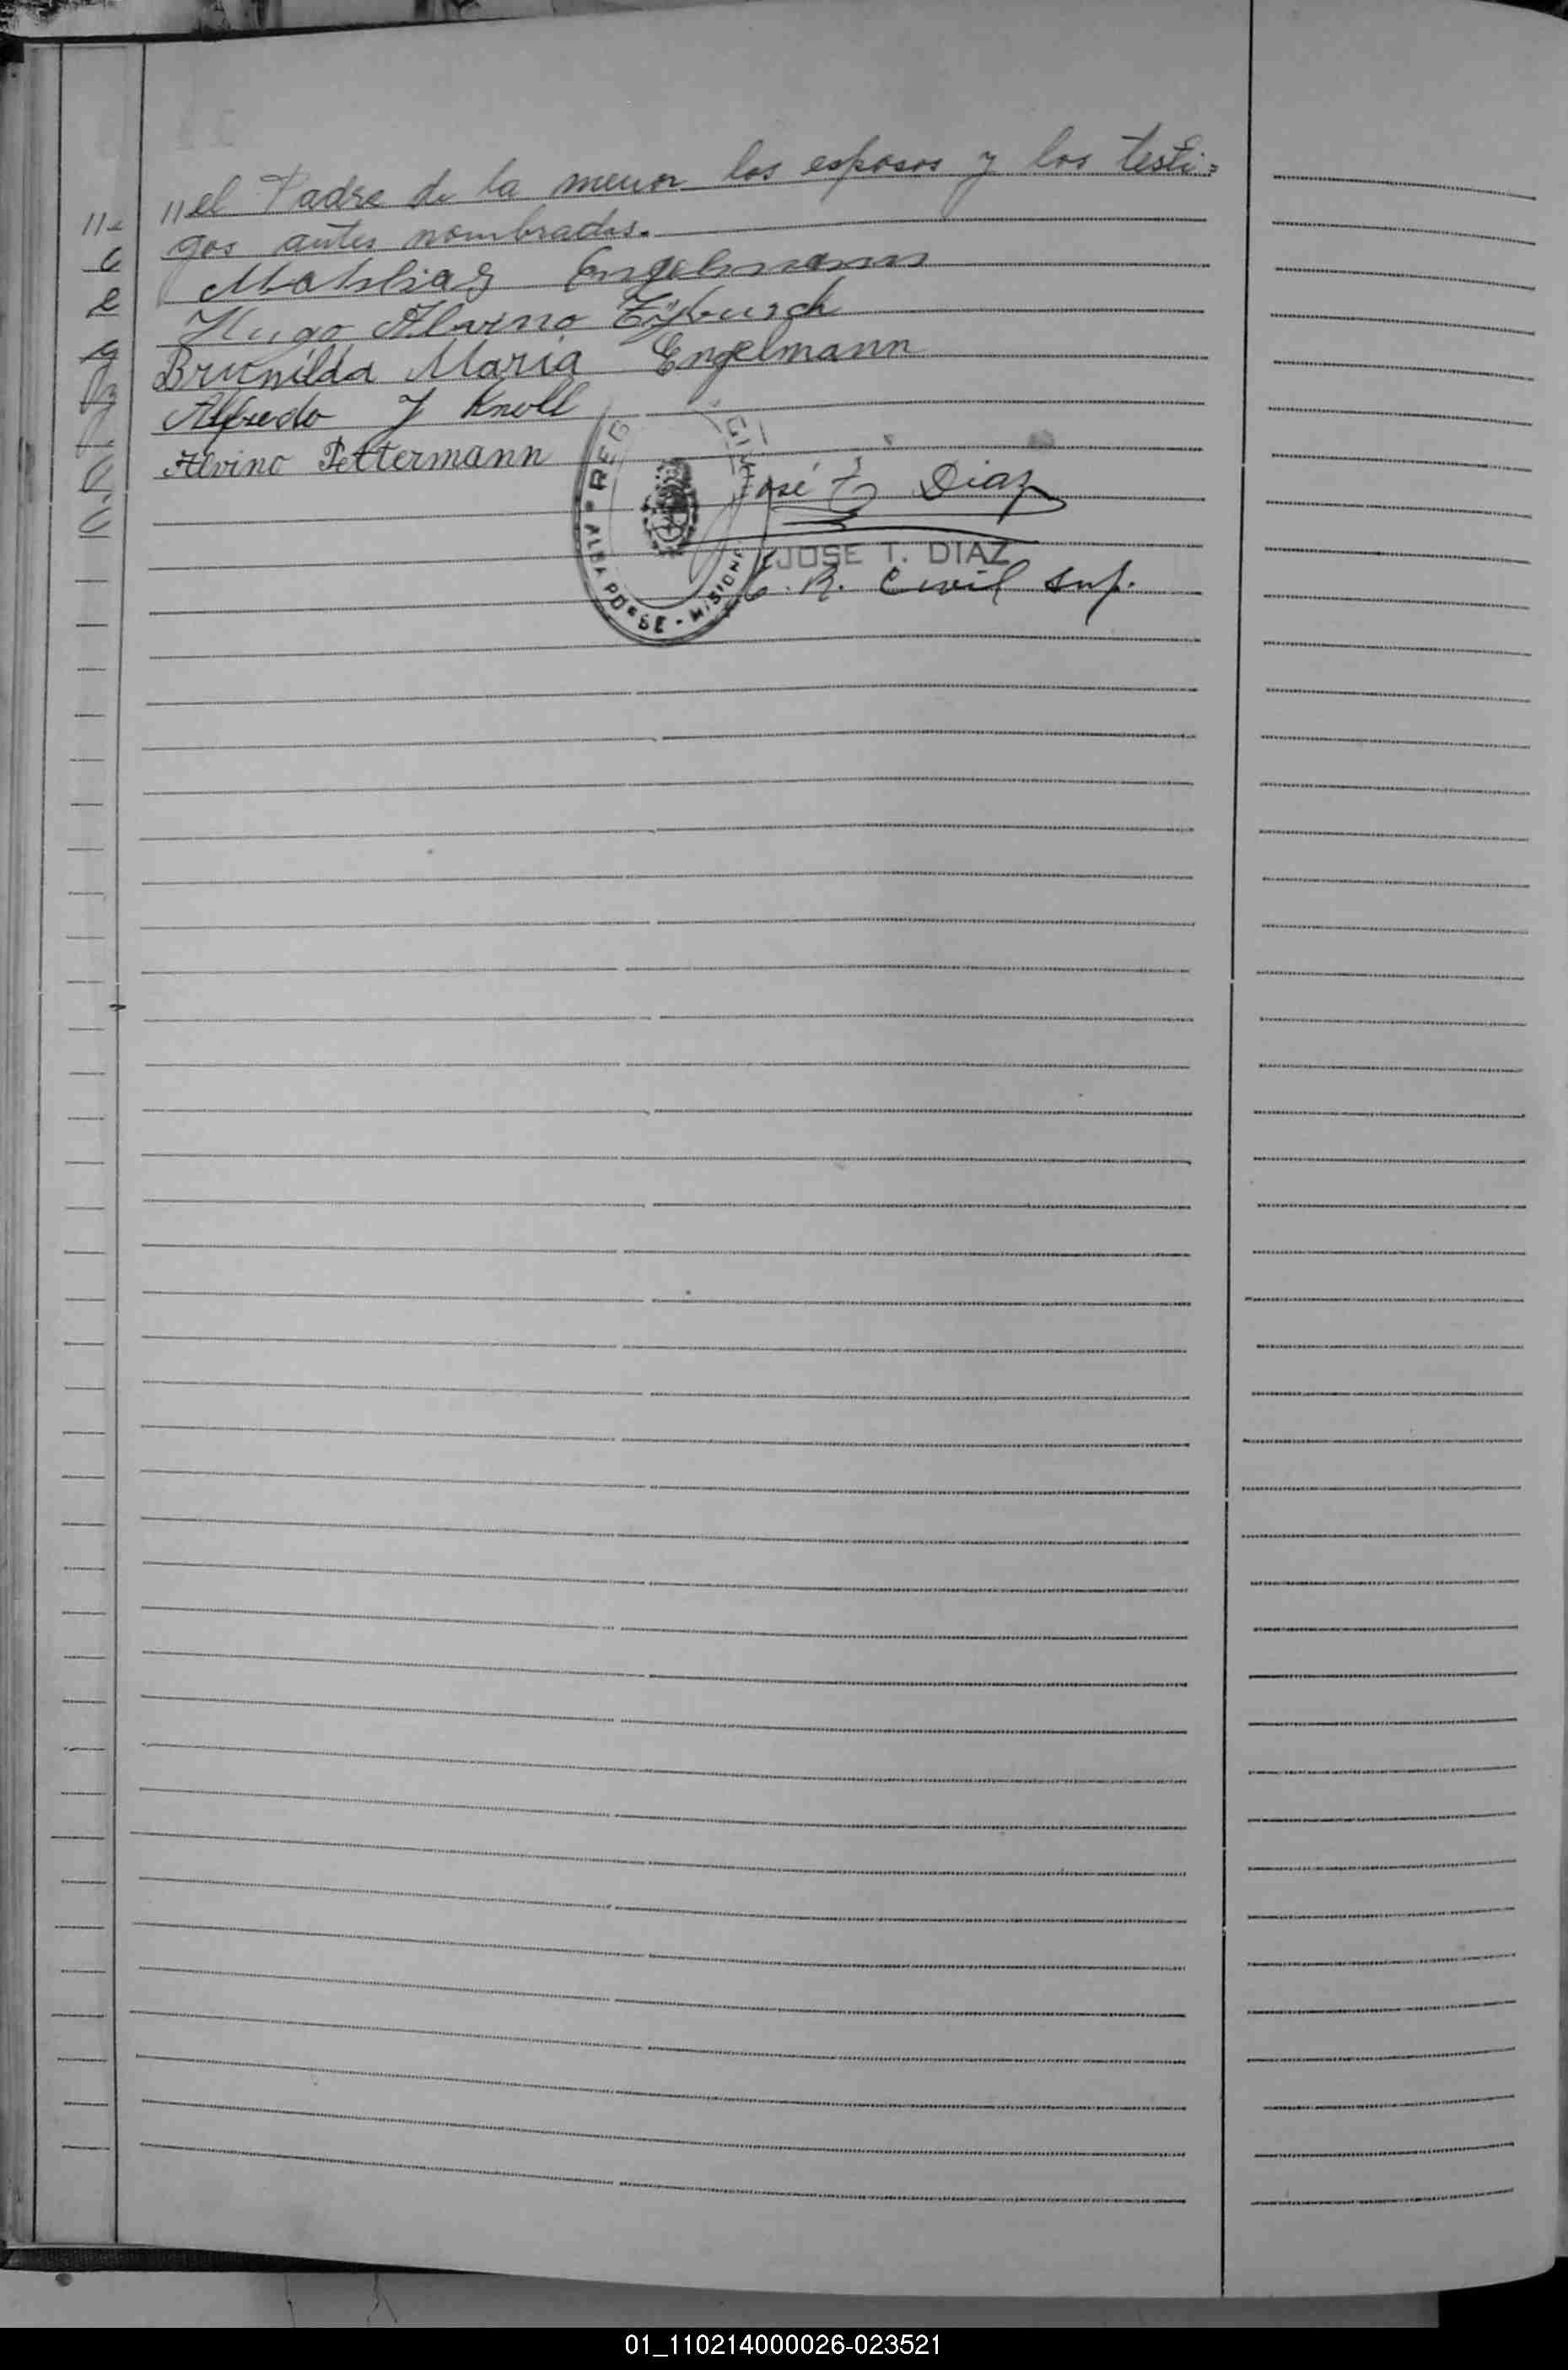 // el Padre de la menor los esposos y los testi=
gos antes nombrados.
Mathias Engelmann
Hugo Alvino Eÿbusch
Brunilda Maria Engelmann
Alfredo J Knoll
Alvino Pettermann
José T Diaz
JOSE T. DIAZ
R. Civil Sup.
REG CIVIL
ALBA POSSE - MISIONES
01_110214000026-023521